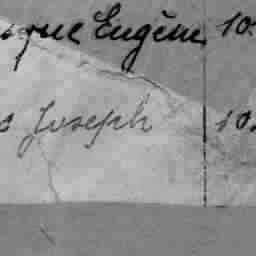 Eugène 10.
Joseph 10.